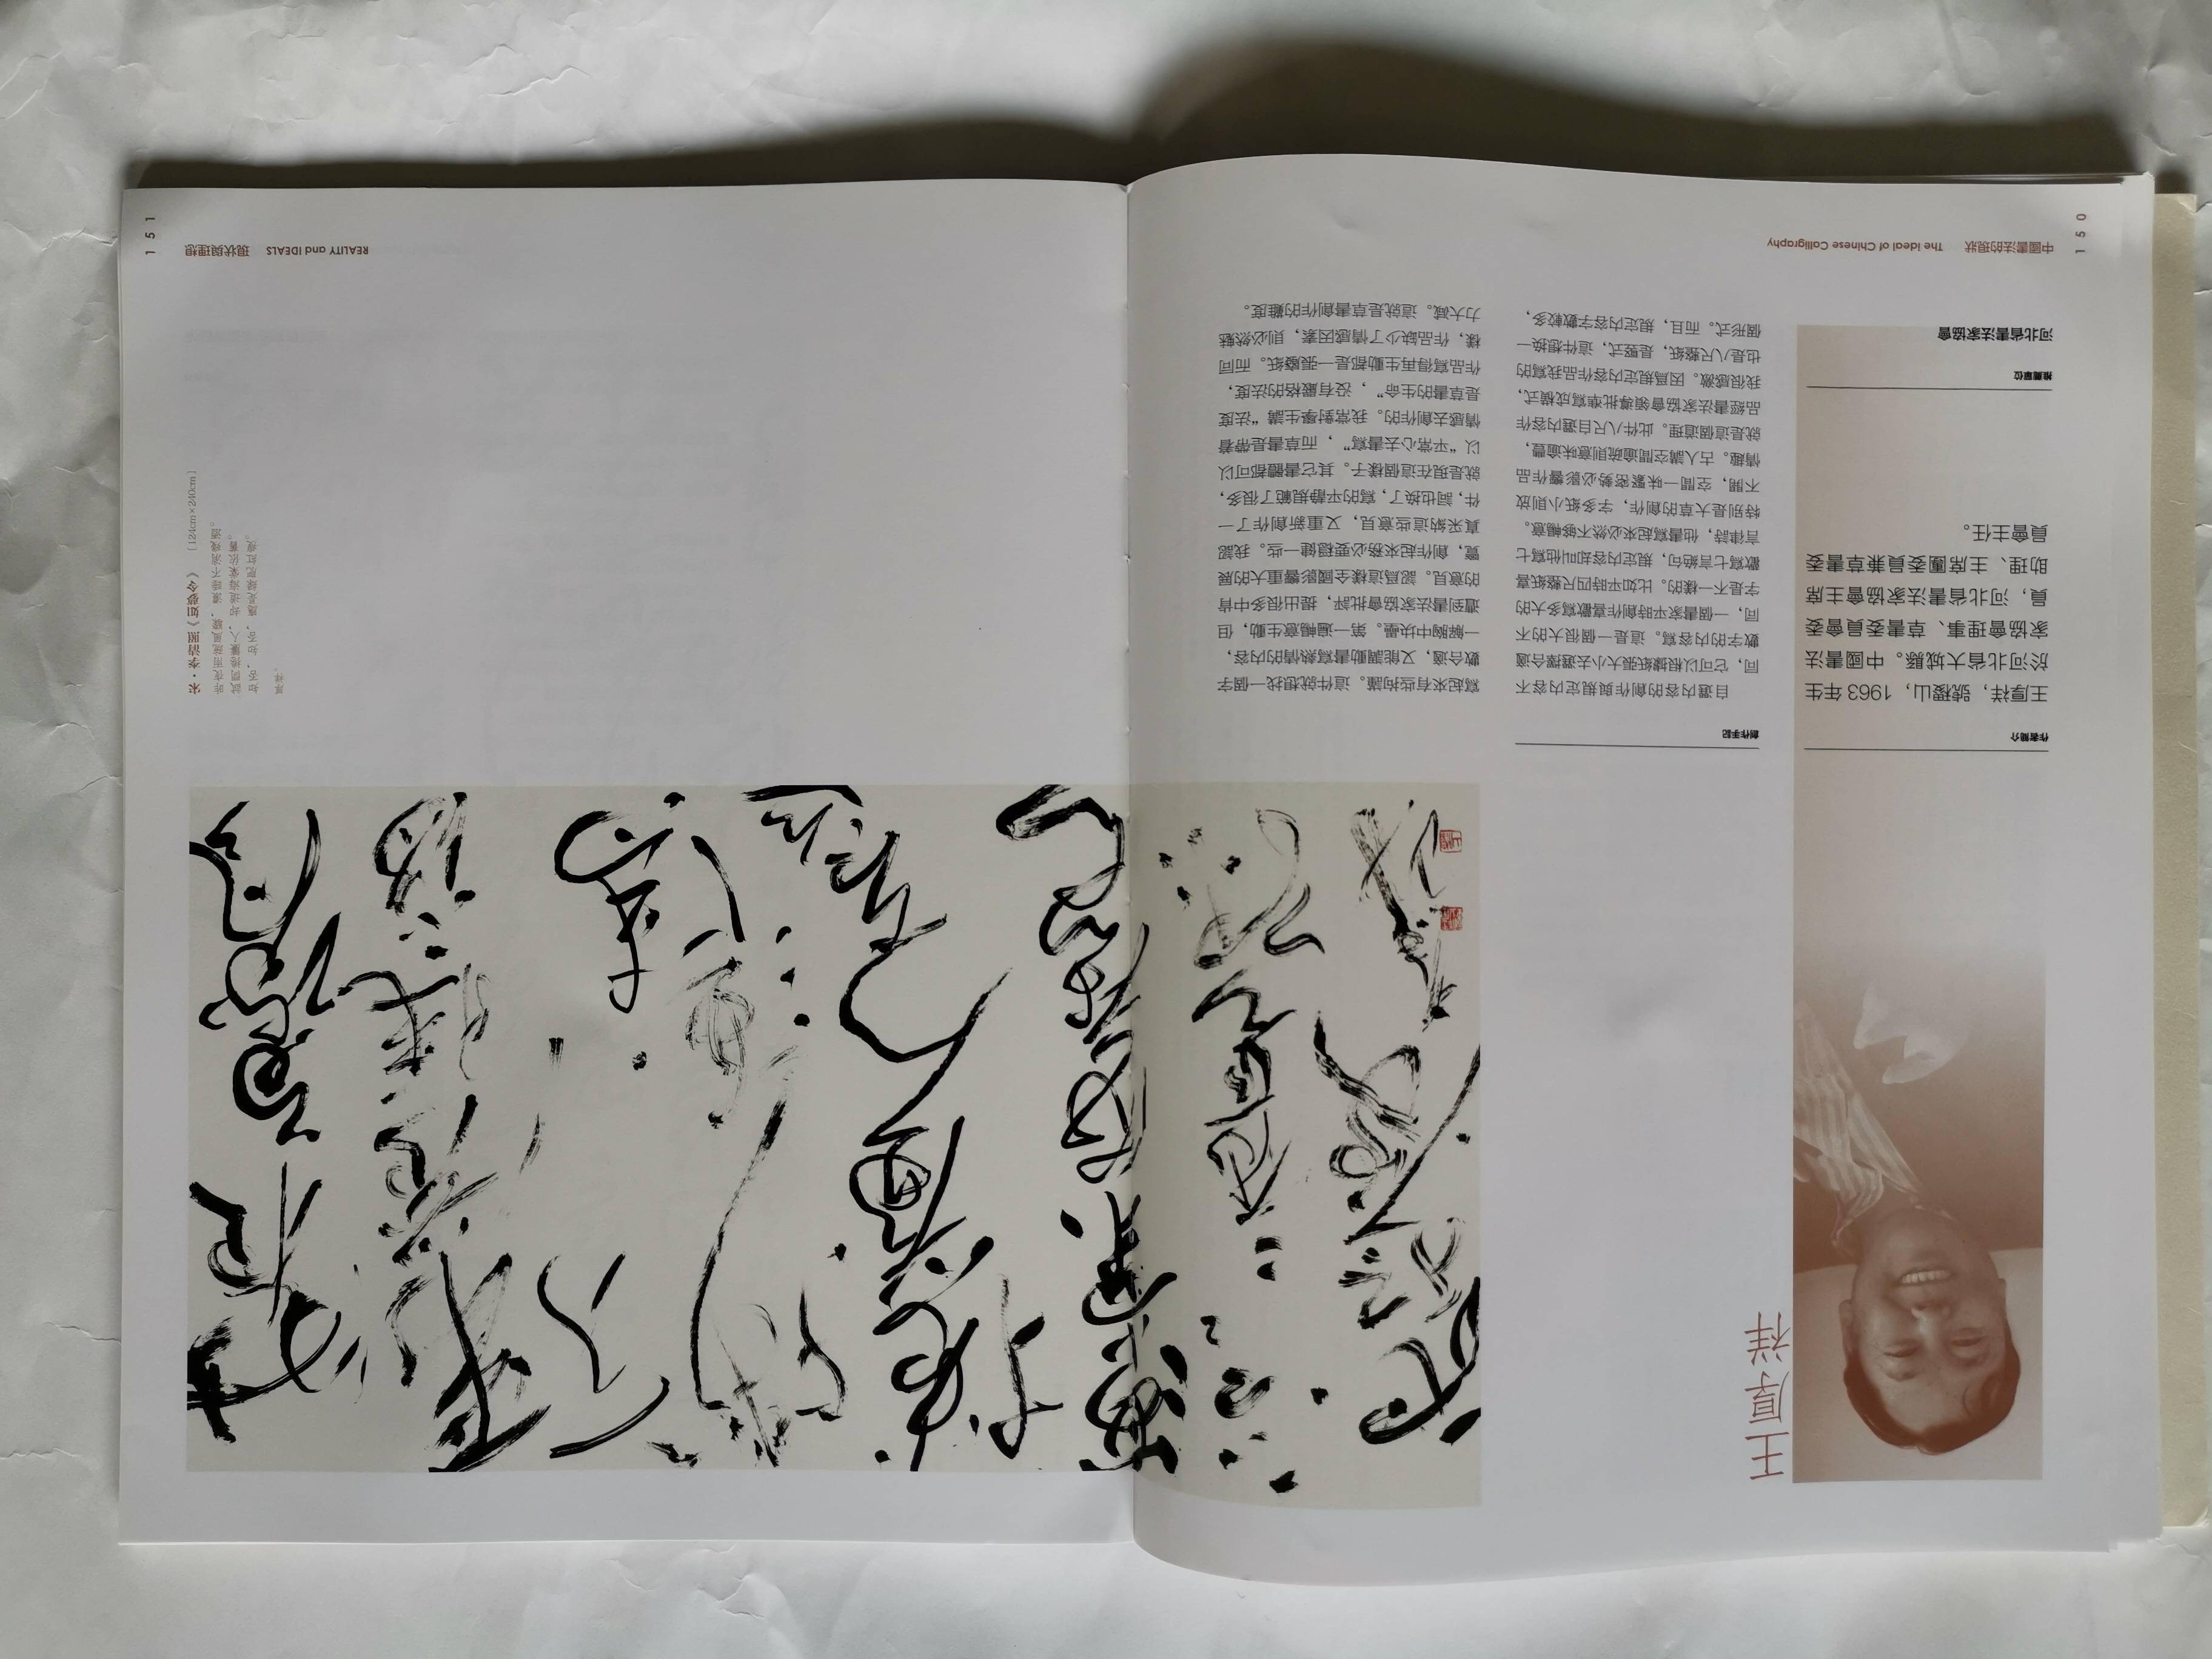 150
中國書法的現狀 The ideal of Chinese Calligraphy
王厚祥
作者簡介
王厚祥，號稷山，1963年生
於河北省大城縣。中國書法
家協會理事、草書委員會委
員，河北省書法家協會主席
助理、主席團委員兼草書委
員會主任。
推薦單位
河北省書法家協會
創作手記
自選内容的創作與規定内容不
同，它可以根據紙張大小去選擇合適
數字的内容寫。這是一個很大的不
同，一個書家平時創作喜歡寫多大的
字是不一樣的。比如平時四尺整紙喜
歡寫七言絶句，規定内容却叫他寫七
言律詩，他書寫起來必然不够暢意。
特别是大草的創作，字多紙小則放
不開，空間一味緊密勢必影響作品
情趣。古人講空間逾疏則意味逾豐，
就是這個道理。此件八尺自選内容作
品經書法家協會領導批準寫成横式，
我很感激。因爲規定内容作品我寫的
也是八尺整紙，是竪式，這件想换一
個形式。而且，規定内容字數較多，
寫起來有些拘謹。這件就想找一個字
數合適，又能調動書寫熱情的内容，
一解胸中块壘。第一遍暢意生動，但
遭到書法家協會批評，提出很多中肯
的意見。認爲這樣全國影響重大的展
覽，創作起來務必要穩健一些。我認
真采納這些意見，又重新創作了一
件，詞也换了，寫的平静規範了很多，
就是現在這個樣子。其它書體都可以
以“平常心去書寫”，而草書是帶着
情感去創作的。我常對學生講“法度
是草書的生命”，没有嚴格的法度，
作品寫得再生動都是一張廢紙。而同
樣，作品缺少了情感因素，則必然魅
力大减。這就是草書創作的難度。
REALITY and IDEALS 現狀與理想
151
宋·李清照《如夢令》 [124cm×240cm]
昨夜雨疏風驟，濃睡不消殘酒。
試問捲簾人，却道海棠依舊。
知否，知否，應是緑肥紅瘦。
厚祥。